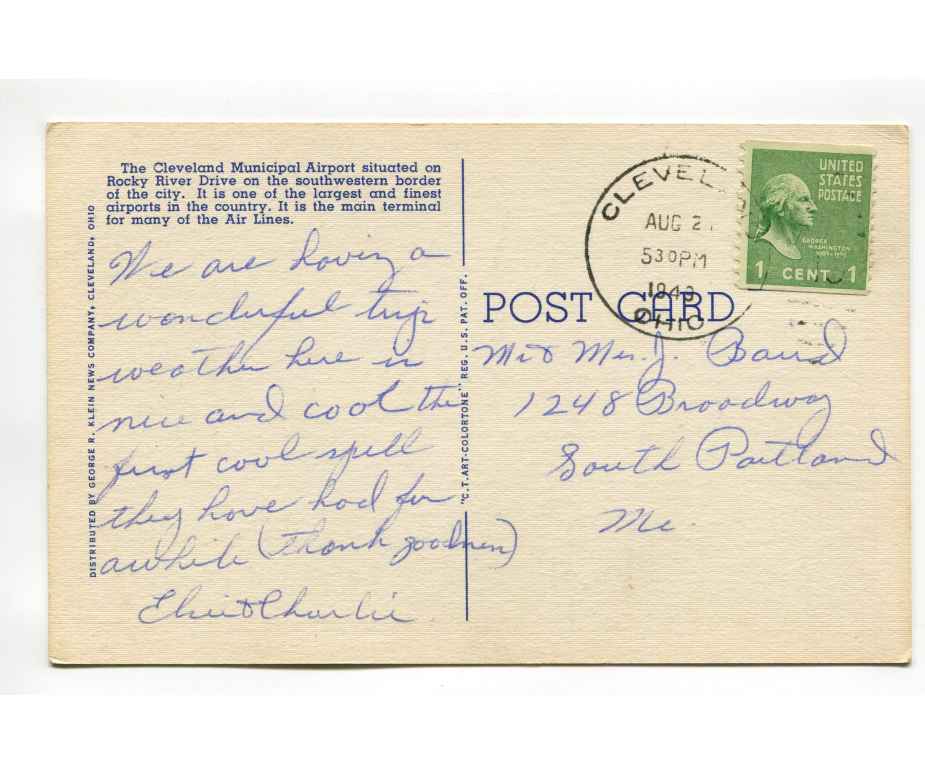 The Cleveland Municipal Airport situated on
Rocky River Drive on the southwestern border
of the city. It is one of the largest and finest
airports in the country. It is the main terminal
for many of the Air Lines.
We are having a
wonderful trip
weather here is
nice and cool the
first cool spell
they have had for
awhile (thank goodness)
& Charlie
DISTRIBUTED BY GEORGE R. KLEIN NEWS COMPANY, CLEVELAND, OHIO
"C.T. ART-COLORTONE" REG. U.S. PAT. OFF.
POST CARD
CLEVEL
AUG 2
5 30 PM
OHIO
UNITED
STATES
POSTAGE
GEORGE
WASHINGTON
1 CENT 1
Mr & Mrs. J. Baird
1248 Broadway
South Portland
Me.